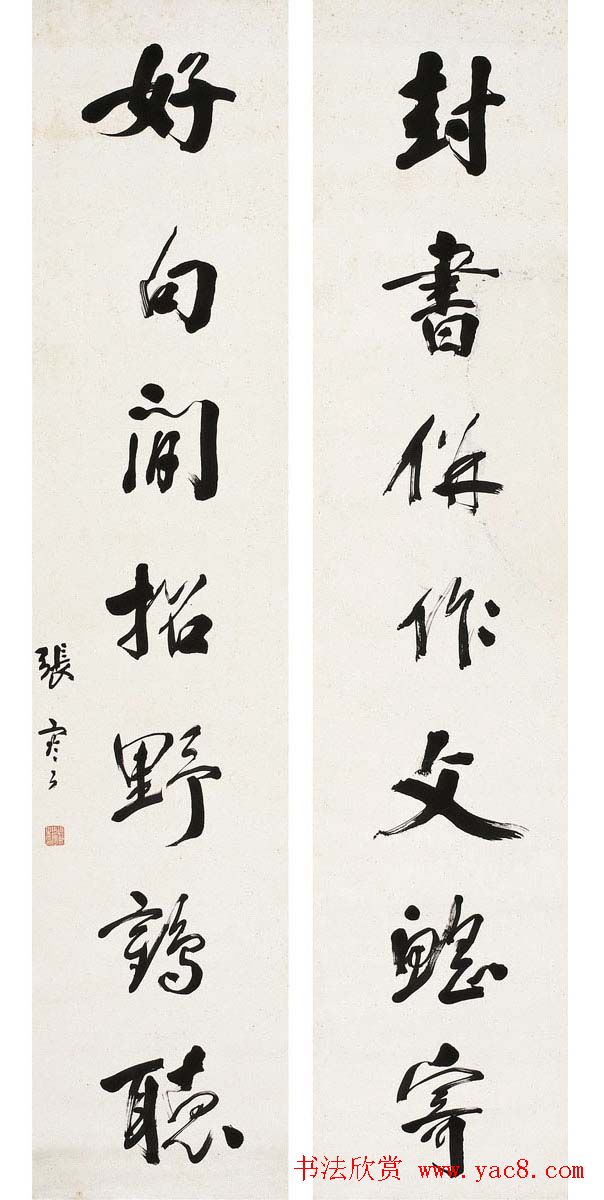 封書併作文寄
好句閒招野鶴聽
張
书法欣赏 www.yac8.com